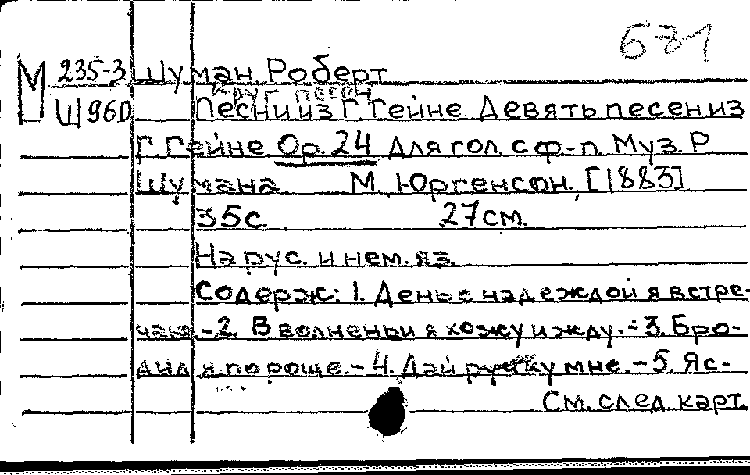 671
М 235-3 Шуман Роберт
Круг песен
Ш960 Песни из Г. Гейне Девять песен из
Г. Гейне Op. 24 Для гол. с ф-п. Муз. Р
Шумана М. Юргенсон, [1883]
35с. 27см.
На рус. и нем. яз.
Содерж: 1. День с надеждой я встре-
чаю -2. В волненьи я хожу и жду. -3. Бро-
дил я по роще. -4. Дай ручку мне. -5. Яс-
См. след. карт.